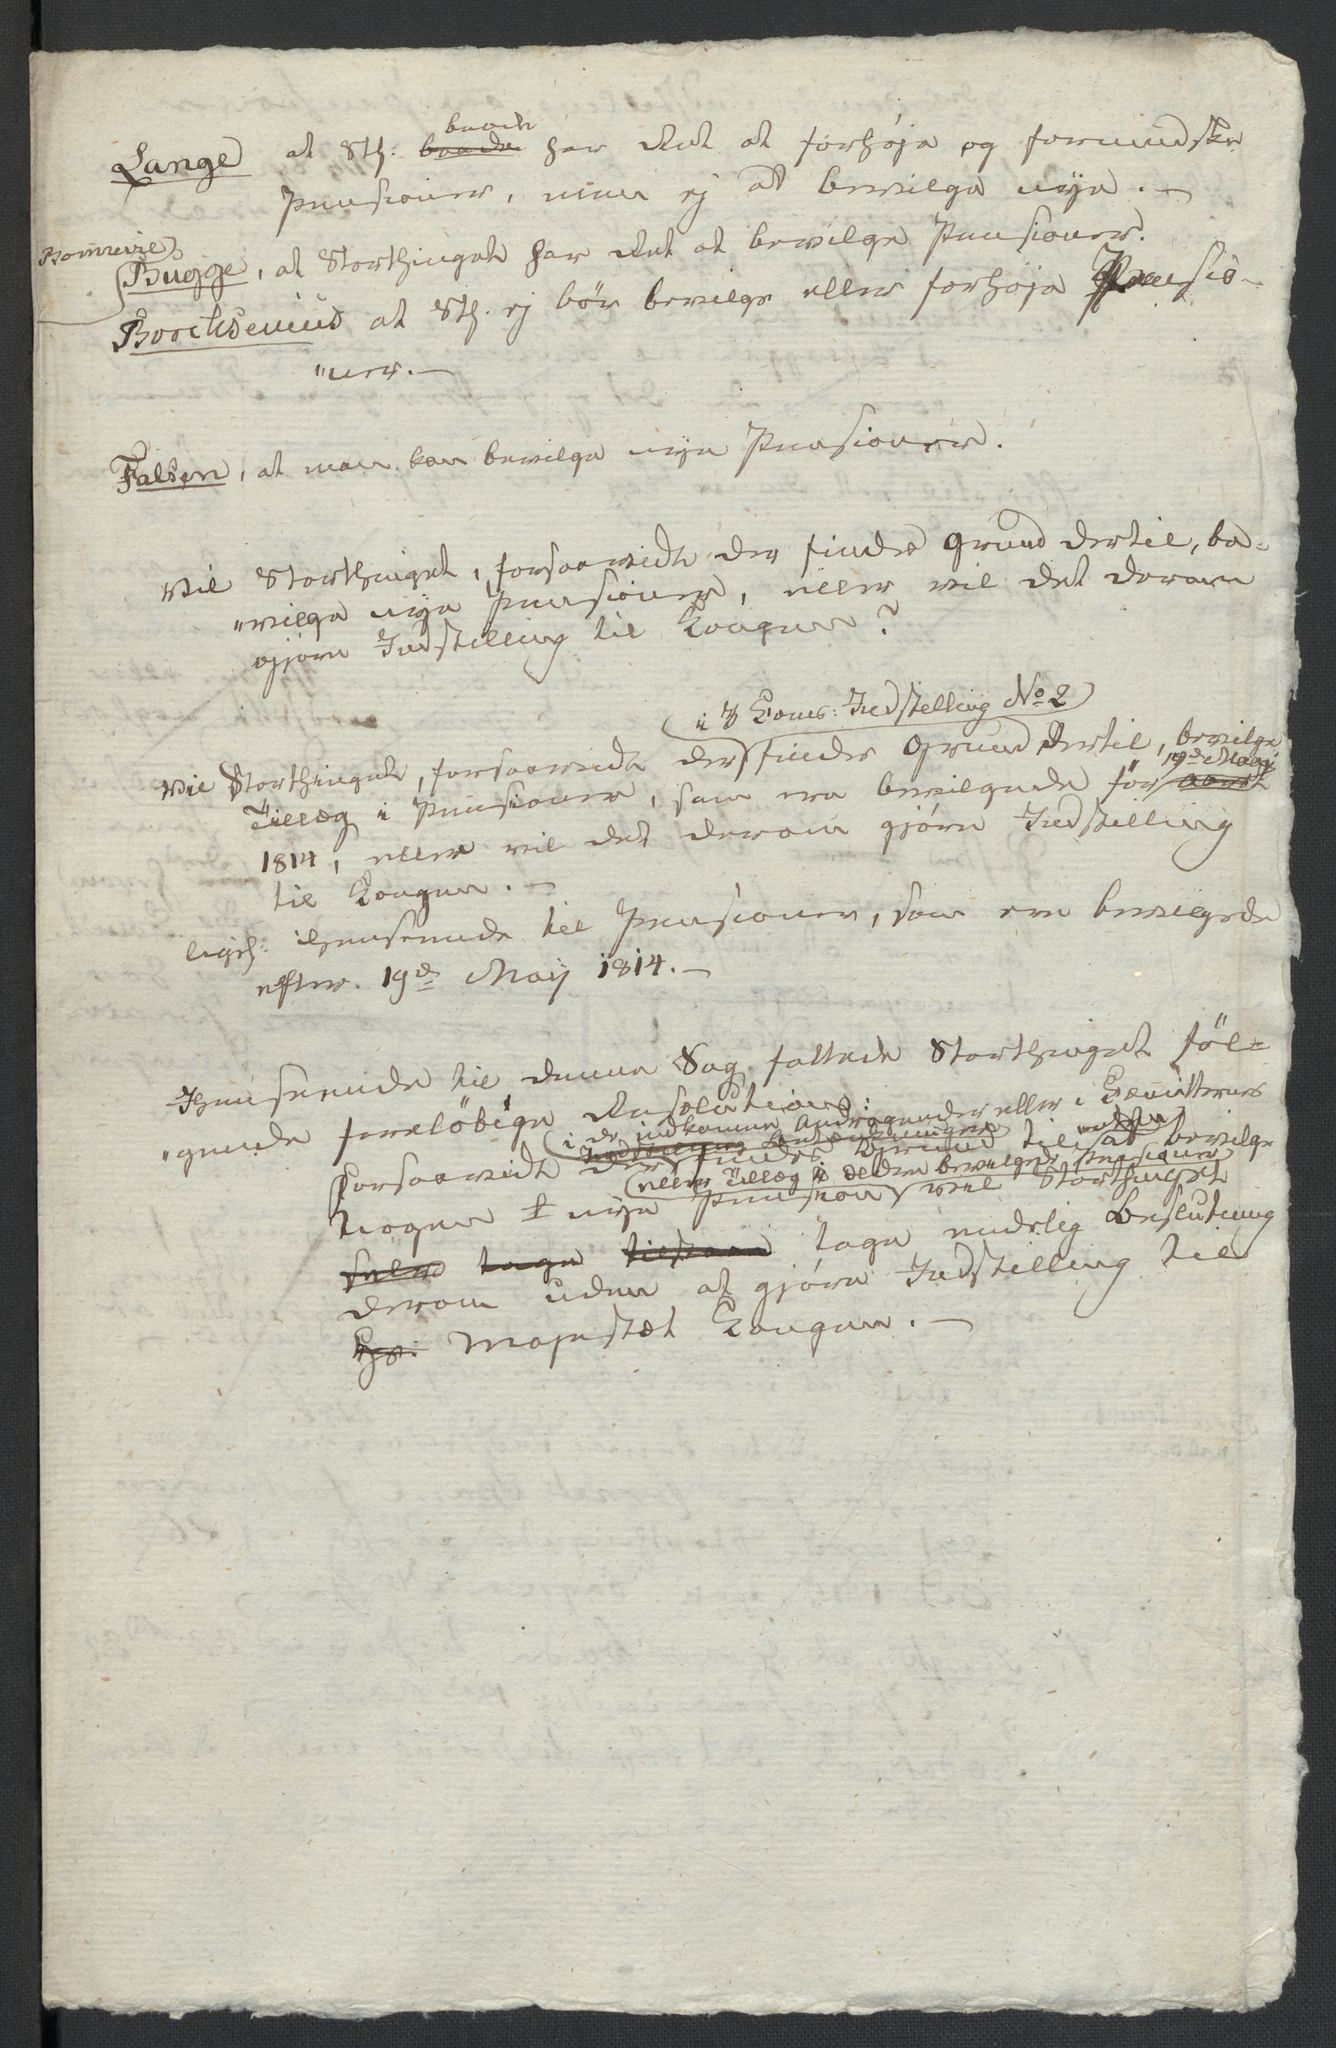 baade
Lange at Sth: baade har Ret at forhøje og formindske
Pensioner, men ej at bevilge nye. —
Bugge, at Storthinget har Ret at bevilge Pensioner.
Borchsenius at Sth. ej bör bevilge eller forhøje Pensio-
"ner. —
Falsen, at man kan bevilge nye Pensioner.
Vil Storthinget, forsaavidt der findes Grund dertil, be-
"vilge nye Pensioner, eller vil det derom
gjøre Indstilling til Kongen?
i Coms: Indstilling No 2
Vil Storthinget, forsaavidt der findes Grund dertil, bevilge
19de May
Tillæg i Pensioner, som ere bevilgede før
1814, eller vil det derom gjøre Indstilling
til Kongen. —
ligel: i Henseende til Pensioner, som ere bevilgede
efter 19de May 1814. —
I Henseende til denne Sag fattede Storthinget föl-
"gende foreløbige Resolution:
i de indkomne Andragender eller i Committeens
Indstilling
Forsaavidt der findes Grund til at bevilge
eller Tillæg i ældre bevilgede Pensioner
nogen nye Pension vil Storthinget
selv tage tage endelig Beslutning
derom uden at gjøre Indstilling til
Hs: Majestæt Kongen. —